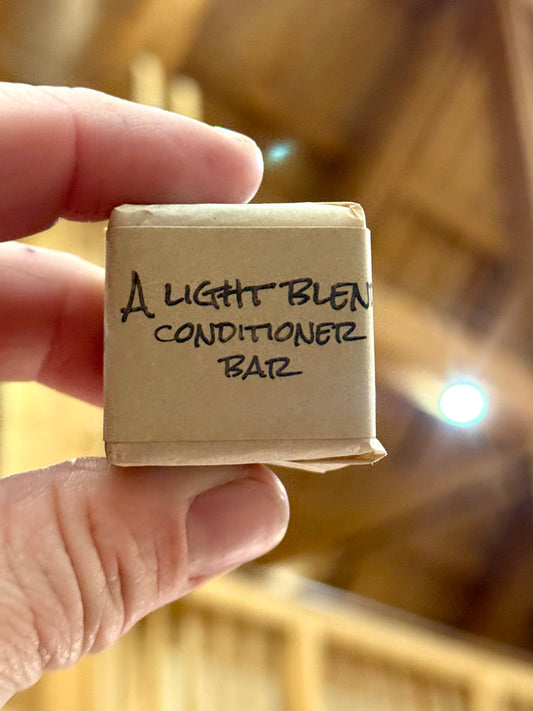 A LIGHT BLEN
CONDITIONER
BAR